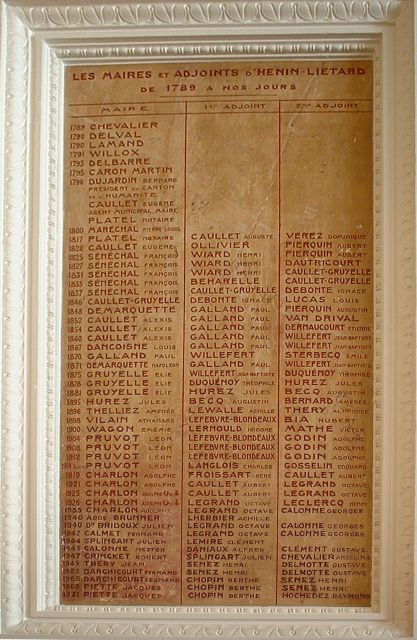 LES MAIRES ET ADJOINTS D'HENIN-LIETARD
DE 1789 A NOS JOURS
MAIRE 1ER ADJOINT 2ÈME ADJOINT
1789 CHEVALIER
1790 DELVAL
1790 LAMAND
1791 WILLOX
1793 DELBARRE
1795 CARON MARTIN
1796 DUJARDIN BERNARD
PRÉSIDENT DU CANTON
DE L'HUMANITÉ
CAULLET EUGÈNE
AGENT MUNICIPAL, MAIRE
PLATEL NOTAIRE
1800 MARÉCHAL PIERRE LOUIS
1817 PLATEL NOTAIRE CAULLET AUGUSTE VEREZ DOMINIQUE
1820 CAULLET EUGÈNE OLLIVIER PIERQUIN AUBERT
1825 SÉNÉCHAL FRANÇOIS WIARD HENRI PIERQUIN AUBERT
1827 SÉNÉCHAL FRANÇOIS WIARD HENRI DAUTRICOURT
1831 SÉNÉCHAL FRANÇOIS WIARD HENRI CAULLET-GRUYELLE
1835 SÉNÉCHAL FRANÇOIS BEHARELLE CAULLET-GRUYELLE
1837 SÉNÉCHAL FRANÇOIS CAULLET-GRUYELLE DEBONTE IGNACE
1846 CAULLET-GRUYELLE DEBONTE IGNACE LUCAS LOUIS
1848 DEMARQUETTE GALLAND PAUL PIERQUIN AUGUSTIN
1852 CAULLET ALEXIS GALLAND PAUL VAN DRIVAL
1854 CAULLET ALEXIS GALLAND PAUL DERNAUCOURT ETIENNE
1860 CAULLET ALEXIS GALLAND PAUL WILLEFERT JEAN-BAPTISTE
1867 DANCOISNE LOUIS GALLAND PAUL WILLEFERT JEAN-BAPTISTE
1870 GALLAND PAUL WILLEFERT STERBECQ EMILE
1871 DEMARQUETTE NAPOLÉON GALLAND PAUL WILLEFERT JEAN-BAPTISTE
1875 GRUYELLE ELIE WILLEFERT JEAN-BAPTISTE DUQUÉNOY THÉOPHILE
1878 GRUYELLE ELIE DUQUÉNOY THÉOPHILE HUREZ JULES
1881 GRUYELLE ELIE HUREZ JULES BECQ AUGUSTIN
1895 HUREZ JULES BECQ AUGUSTIN BERNARD AMÉDÉE
1896 THELLIEZ AMÉDÉE LEWALLE ACHILLE THERY ALPHONSE
1898 VILAIN ATHANASE LEFEBVRE-BLONDEAUX BIA HUBERT
1900 WAGON LERNOULD ISIDORE MATHÉ VICTOR
1904 PRUVOT LÉON LEFEBVRE-BLONDEAUX GODIN ADOLPHE
1908 PRUVOT LÉON LEFEBVRE-BLONDEAUX GODIN ADOLPHE
1912 PRUVOT LÉON LEFEBVRE-BLONDEAUX GODIN ADOLPHE
PRUVOT LÉON LANGLOIS CHARLES GOSSELIN EDOUARD
1919 CHARLON ADOLPHE FROISSART RENÉ CAULLET AUBERT
1921 CHARLON ADOLPHE CAULLET AUBERT LEGRAND OCTAVE
1925 CHARLON ADOLPHE CAULLET AUBERT LEGRAND OCTAVE
1925 CHARLON ADOLPHE LEGRAND OCTAVE LECLERCQ HENRI
1935 CHARLON ADOLPHE LEGRAND OCTAVE CALONNE GEORGES
1940 ABBÉ BRUNNER LHERBIER ACHILLE
1940 DR BRIDOUX JULIEN LEGRAND OCTAVE CALONNE GEORGES
1942 CALMET FERNAND LEGRAND OCTAVE CALONNE GEORGES
1944 SPLINGART JULIEN LEMIRE CLÉMENT
1945 CALONNE NESTOR DANIAUX ALFRED CLÉMENT GUSTAVE
1947 CRINCKET ROBERT SPLINGART JULIEN CHEVALIER
1949 THÉRY JEAN SENEZ HENRI DELMOTTE GUSTAVE
1953 DARCHICOURT FERNAND SENEZ HENRI DELMOTTE GUSTAVE
1965 DARCHICOURT FERNAND CHOPIN BERTHE SENEZ HENRI
PIETTE JACQUES CHOPIN BERTHE SENEZ HENRI
1971 PIETTE JACQUES CHOPIN BERTHE HOCHEDEZ RAYMOND